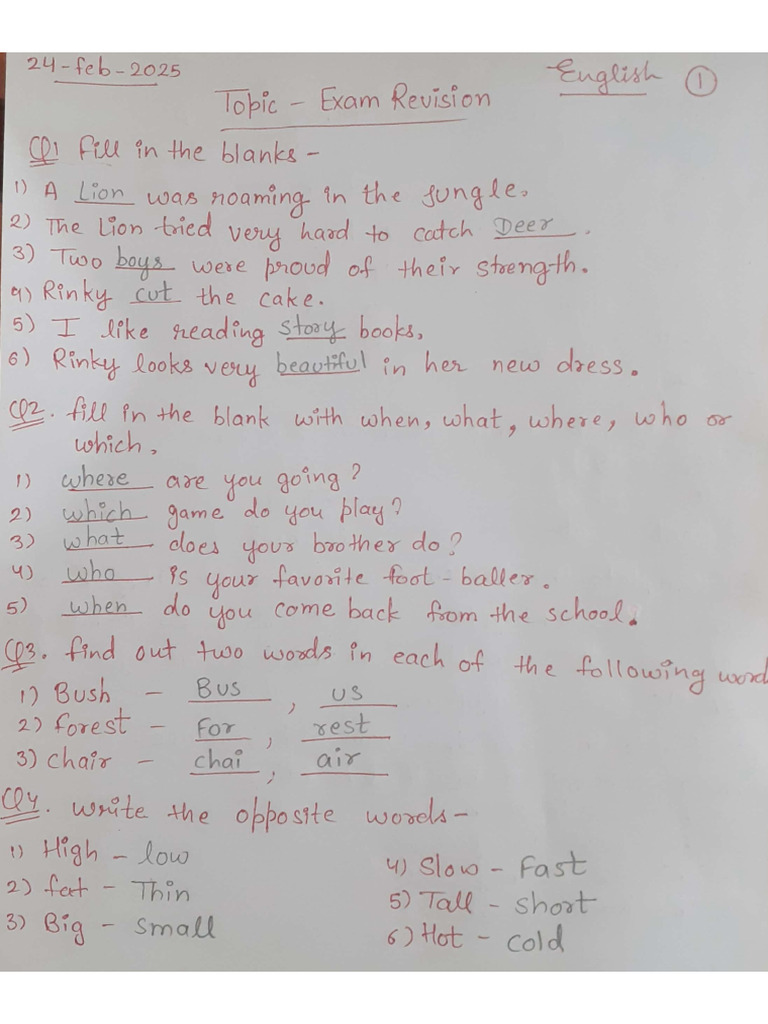 24-feb-2025
English 1
Topic - Exam Revision
Q1 fill in the blanks -
1) A Lion was roaming in the jungle.
2) The Lion tried very hard to catch Deer.
3) Two boys were proud of their strength.
4) Rinky cut the cake.
5) I like reading story books.
6) Rinky looks very beautiful in her new dress.
Q2. fill in the blank with when, what, where, who or
which.
1) where are you going?
2) which game do you play?
3) what does your brother do?
4) who is your favorite foot-baller.
5) when do you come back from the school.
Q3. find out two words in each of the following word
1) Bush - Bus, us
2) forest - For, rest
3) Chair - chai, air
Q4. write the opposite words-
1) High - low
2) fat - Thin
3) Big - small
4) Slow - Fast
5) Tall - short
6) Hot - cold